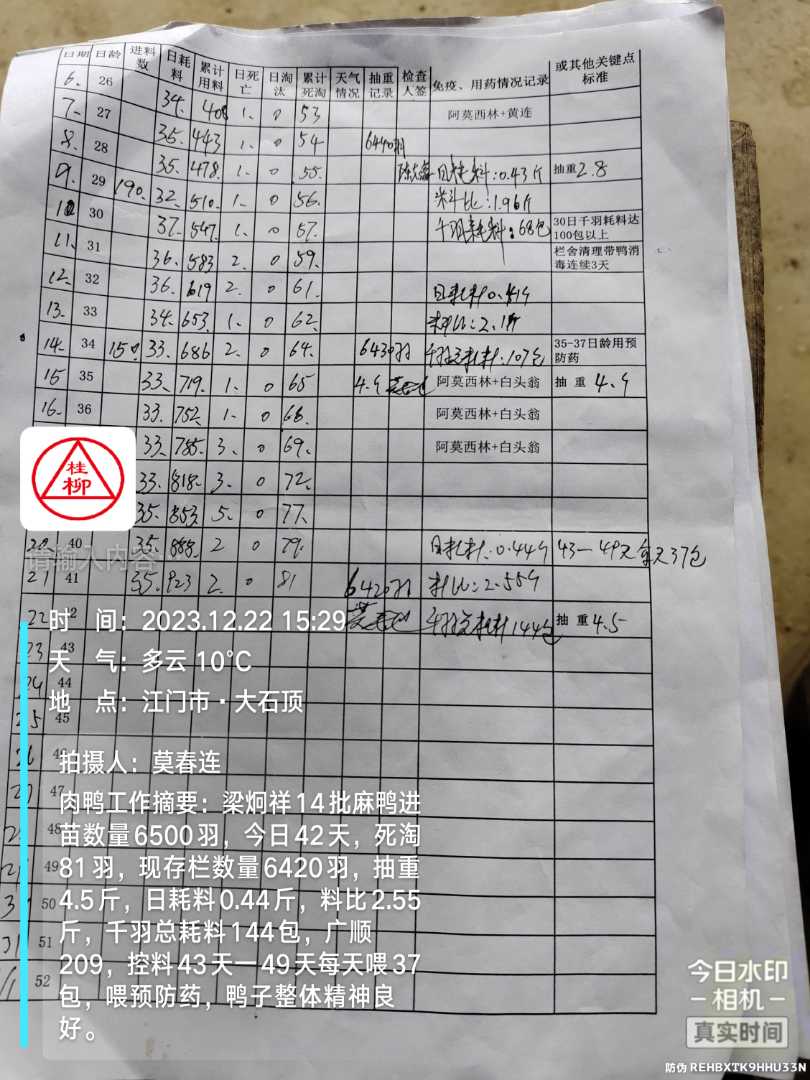 日期 日龄 进料数 日耗料 累计用料 日死亡 日淘汰 累计死淘 天气情况 抽重记录 检查人签 免疫、用药情况记录 或其他关键点标准
6. 26 34. 408 1. 0 53
7. 27 35. 443 1. 0 54 阿莫西林+黄连
8. 28 35. 478. 1. 0 55. 6440羽
9. 29 190. 32. 510. 1. 0 56. 日耗料:0.43斤 抽重2.8
料比:1.96斤
10 30 37. 547. 1. 0 57. 千羽耗料:68包 30日千羽耗料达100包以上
11. 31 36. 583 2. 0 59. 栏舍清理带鸭消毒连续3天
12. 32 36. 619 2. 0 61.
13. 33 34. 653. 1. 0 62. 料比:2.1斤
14. 34 150. 33. 686 2. 0 64. 6430羽 107包 35-37日龄用预防药
15 35 33. 719. 1. 0 65 阿莫西林+白头翁 抽 重
16. 36 33. 752. 1. 0 阿莫西林+白头翁
33. 785. 3. 0 69. 阿莫西林+白头翁
33. 818. 3. 0 72.
35. 853 5. 0 77.
20. 40 35. 888. 2 0 79. 日耗料:0.44斤 43—49天每天37包
21 41 35. 923 2. 0 81 6420羽 料比:2.55斤
22 2 144包 抽 重 4.5
23 43
24 44
25 45
26 46
27 47
48
49
50
31 51
52
桂柳
请输入内容
时 间:2023.12.22 15:29
天 气:多云 10℃
地 点:江门市·大石顶
拍摄人:莫春连
肉鸭工作摘要:梁炯祥14批麻鸭进
苗数量6500羽,今日42天,死淘
81羽,现存栏数量6420羽,抽重
4.5斤,日耗料0.44斤,料比2.55
斤,千羽总耗料144包,广顺
209,控料43天一49天每天喂37
包,喂预防药,鸭子整体精神良
好。
今日水印
相机
真实时间
防伪 REHBXTK9HHU33N